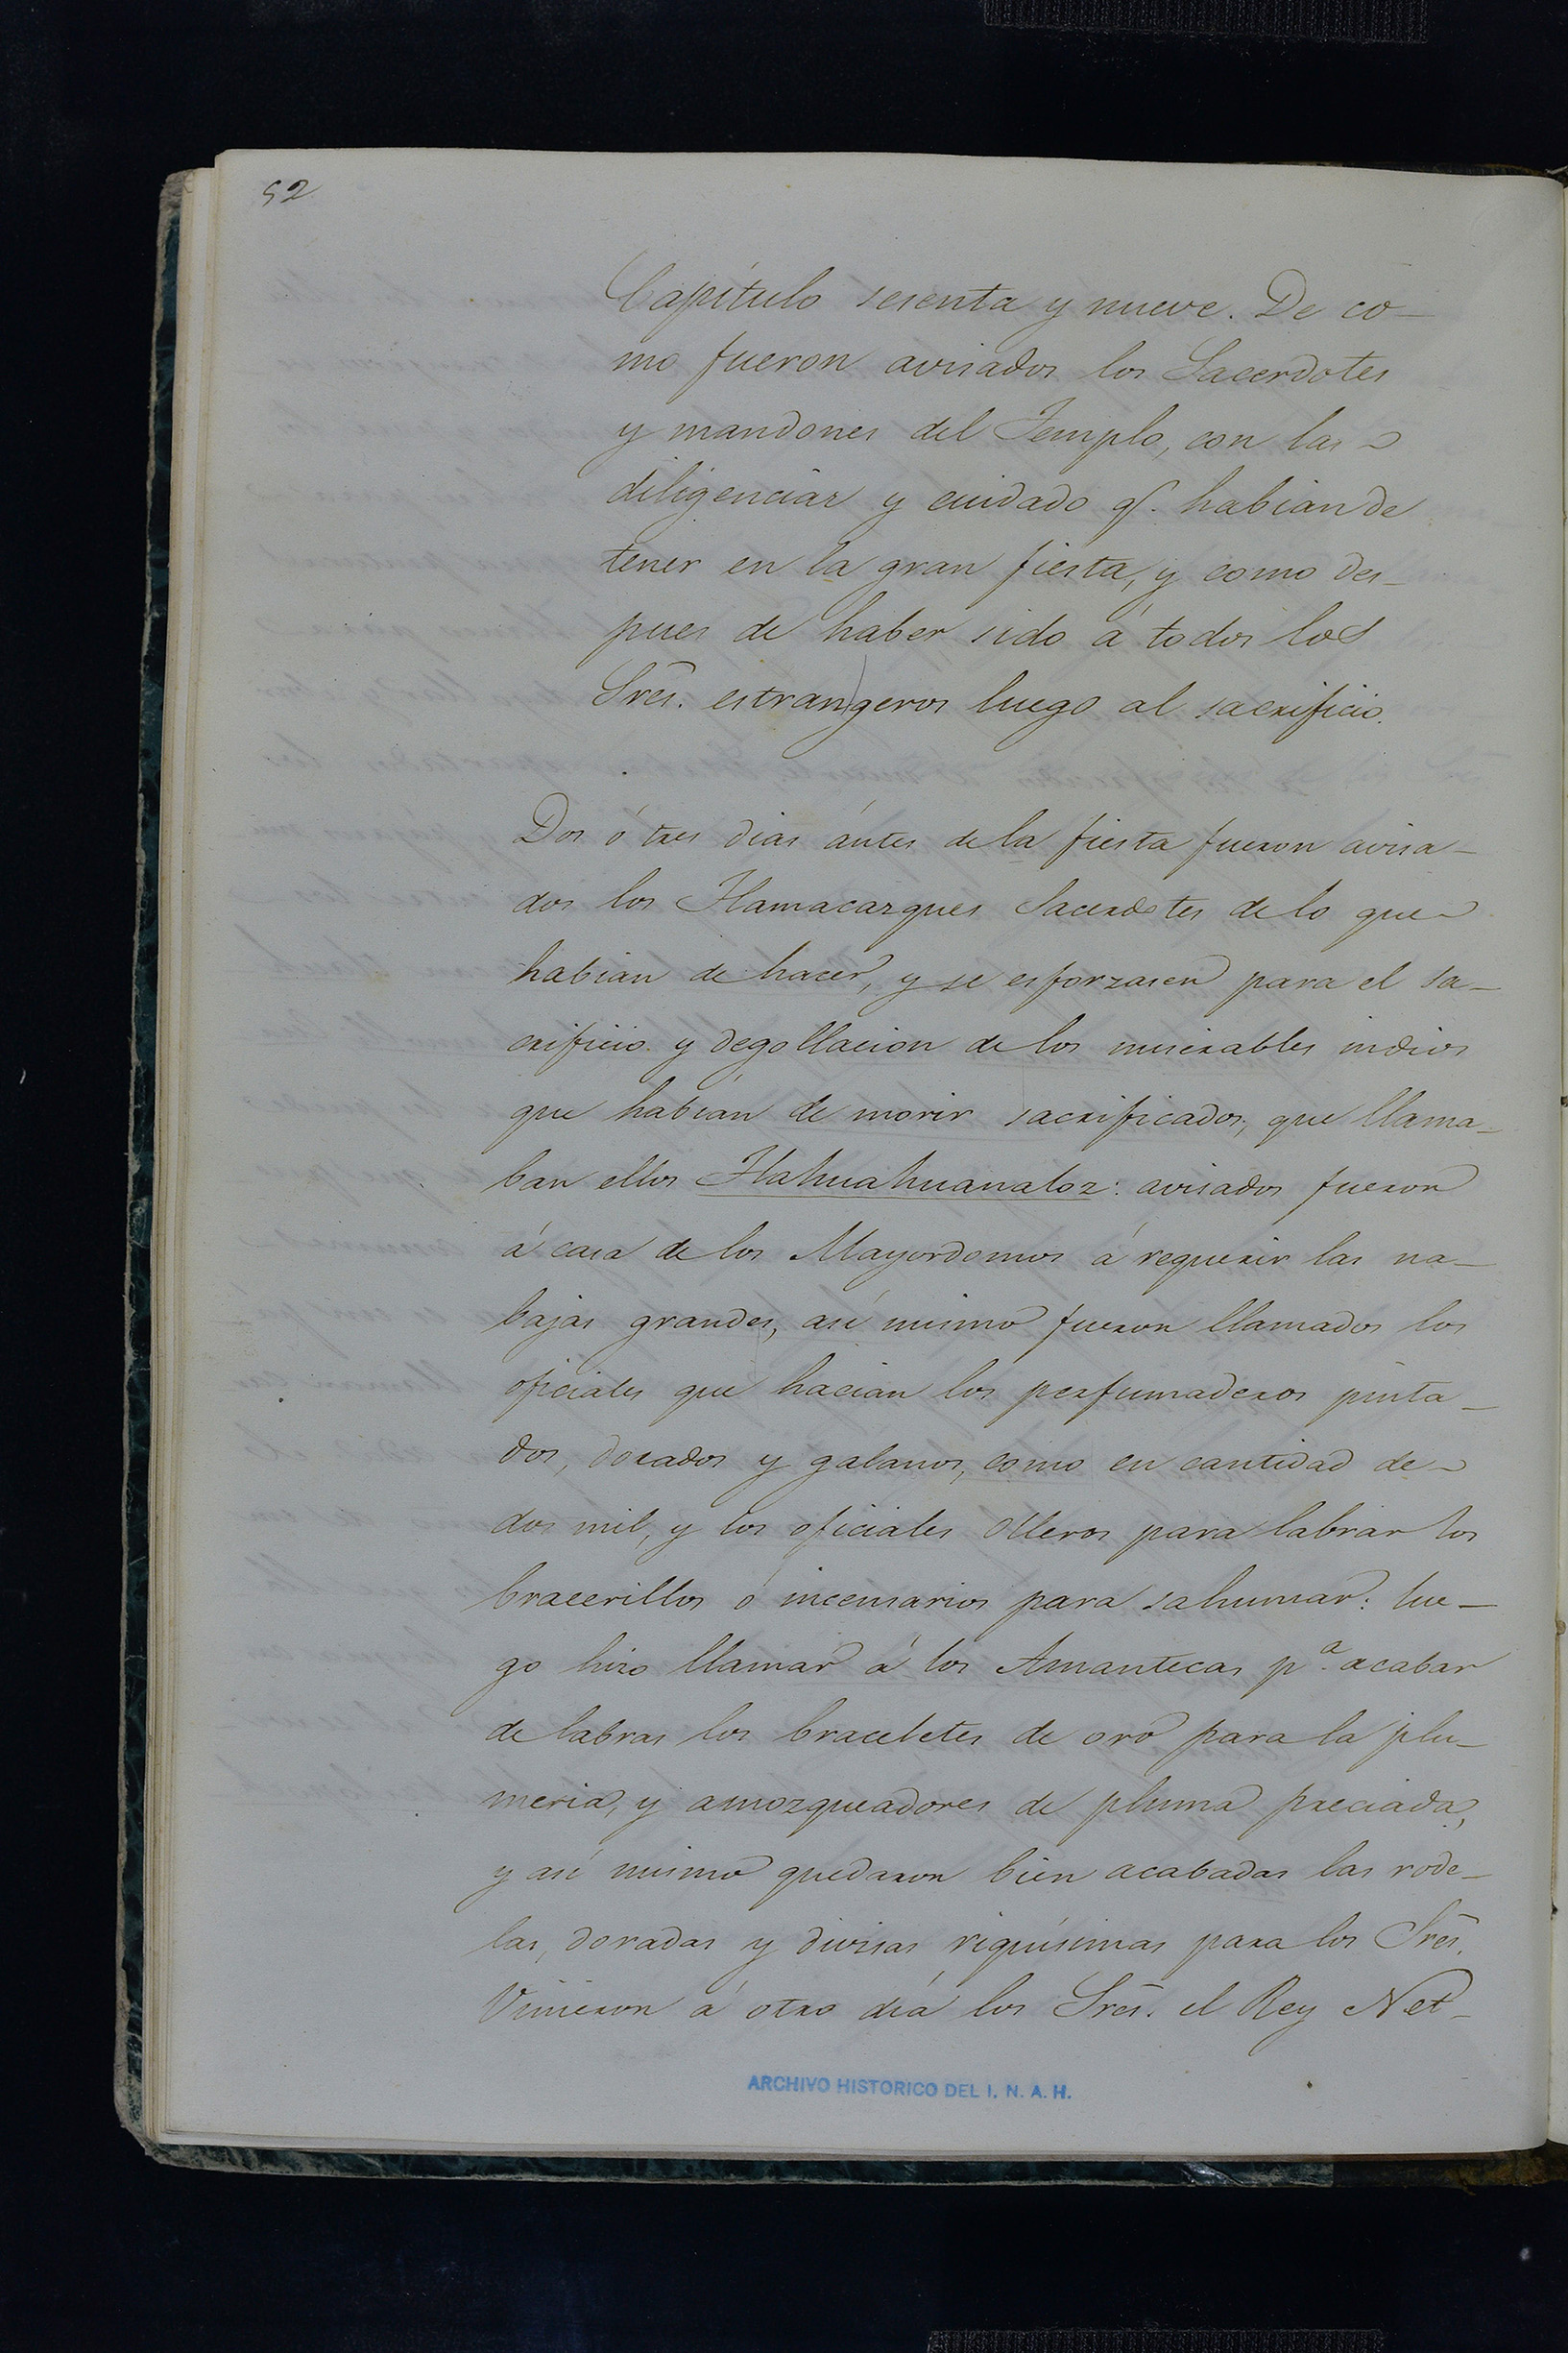 52
Capítulo sesenta y nueve. De co-
mo fueron avisados los Sacerdotes
y mandones del Templo, con las
diligencias y cuidado q.e habian de
tener en la gran fiesta, y como des-
pues de haber sido á todos los
Sres. estrangeros luego al sacrificio.
Dos ó tres dias ántes de la fiesta fueron avisa-
dos los Tlamacazques Sacerdotes de lo que
habian de hacer, y se esforzasen para el sa-
crificio y degollacion de los miserables indios
que habian de morir sacrificados, que llama-
ban ellos Tlahuahuanaloz: avisados fueron
á casa de los Mayordomos á requerir las na-
bajas grandes, asi mismo fueron llamados los
oficiales que hacian los perfumaderos pinta-
dos, dorados y galanos, como en cantidad de
dos mil, y los oficiales Olleros para labrar los
bracerillos ó incensarios para sahumar: lue-
go hizo llamar á los Amantecas p.a acabar
de labrar los braceletes de oro para la plu-
meria, y amozqueadores de pluma preciada,
y asi mismo quedaron bien acabadas las rode-
las, doradas y divisas riquísimas para los Sres.
Vinieron á otro dia los Sres. el Rey Net-
ARCHIVO HISTORICO DEL I. N. A. H.